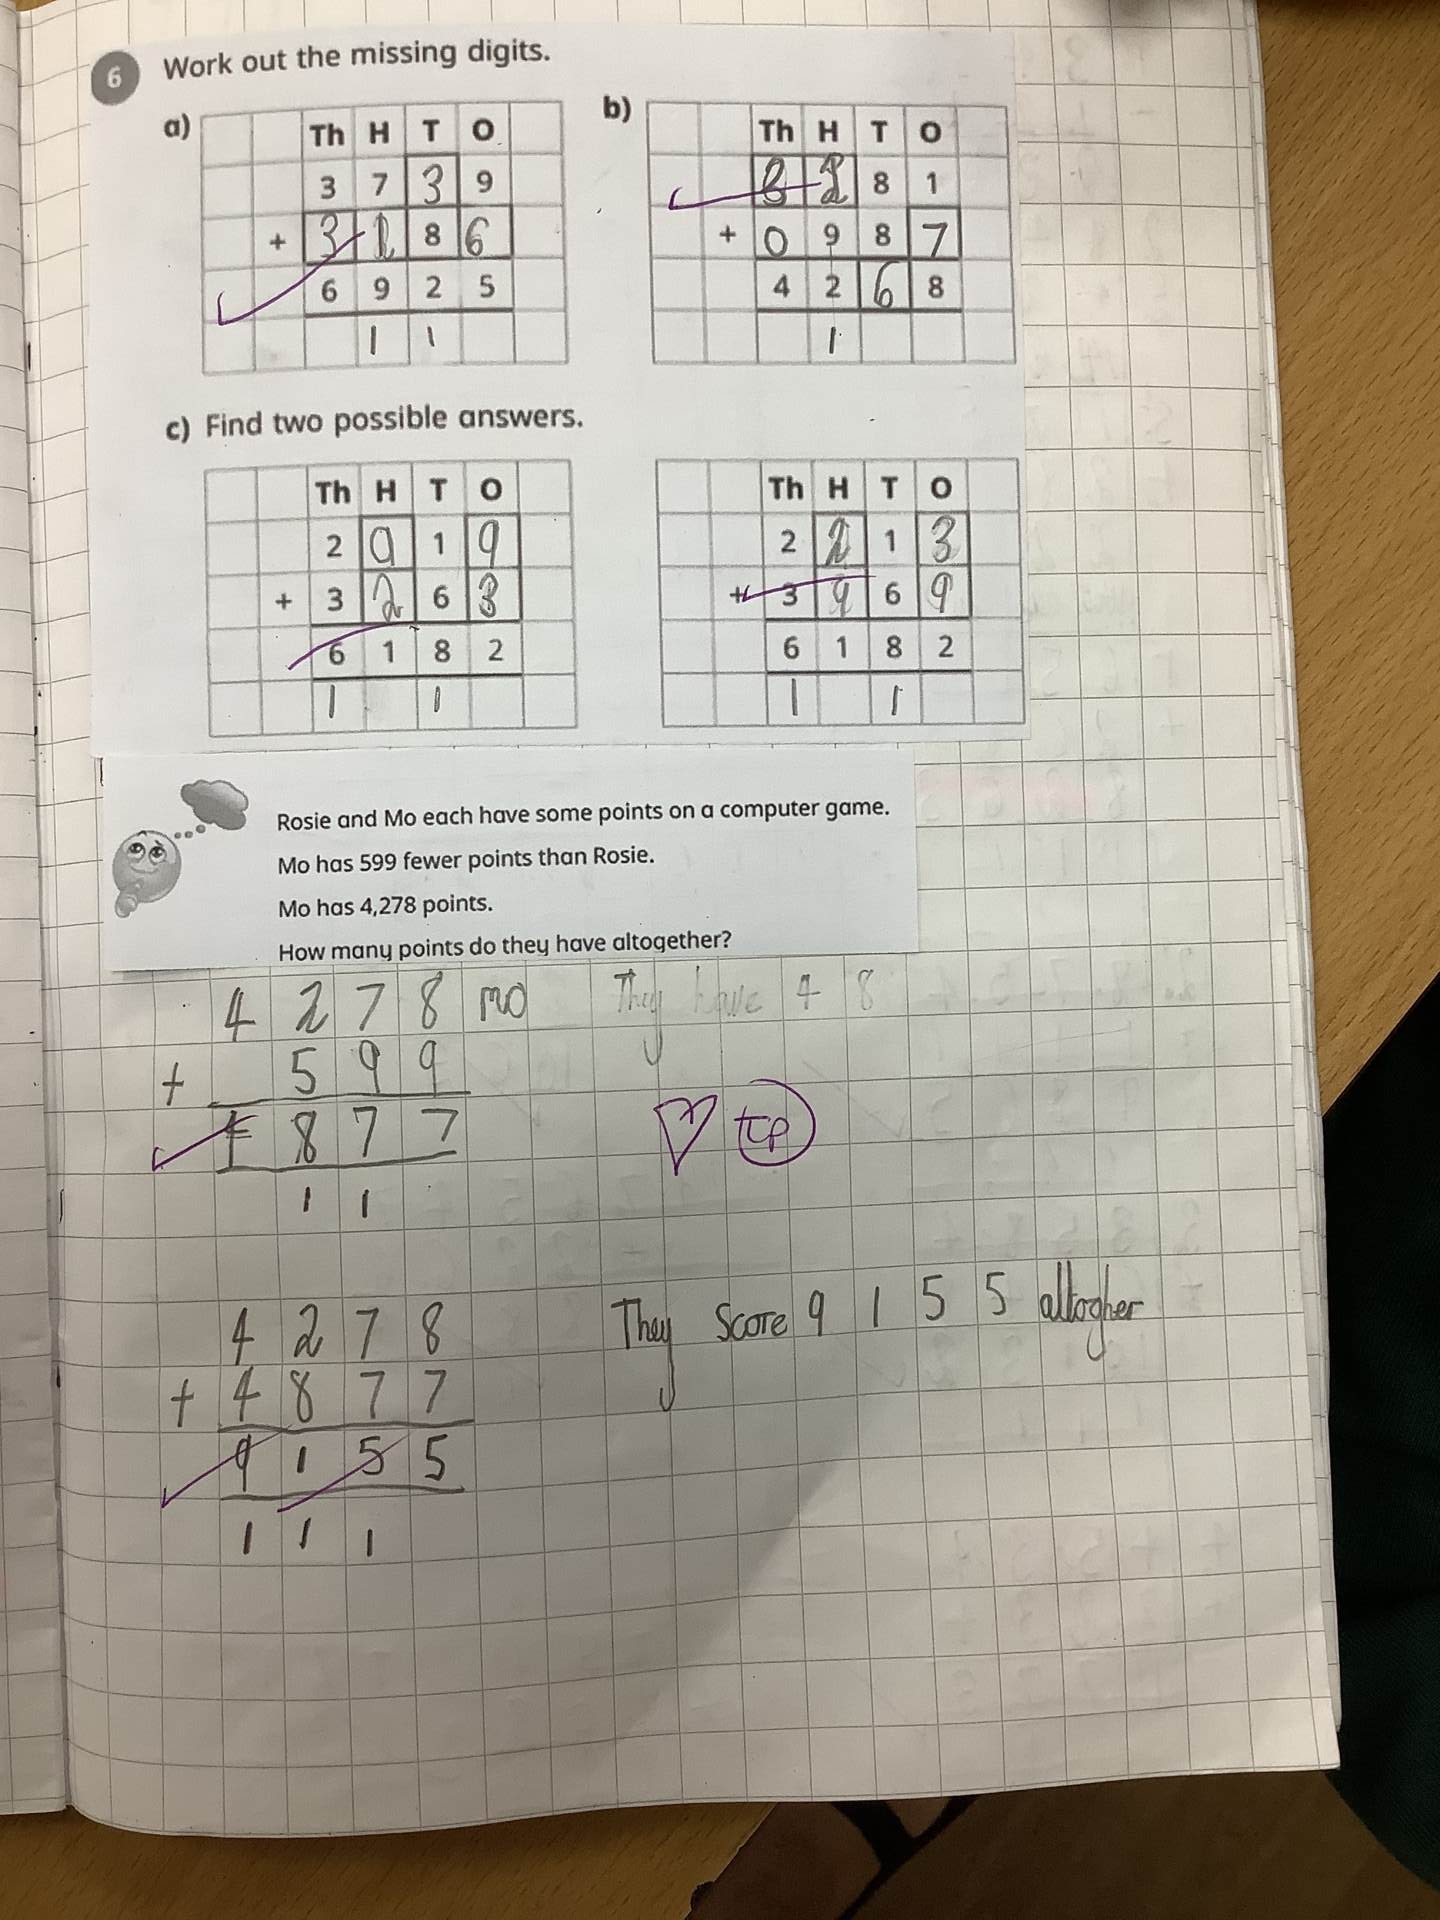 6 Work out the missing digits.
a) b)
Th H T O
3 7 3 9
+ 3 1 8 6
6 9 2 5
1 1
Th H T O
3 2 8 1
+ 0 9 8 7
4 2 6 8
1
c) Find two possible answers.
Th H T O
2 9 1 9
+ 3 2 6 3
6 1 8 2
1 1
Th H T O
2 2 1 3
+ 3 9 6 9
6 1 8 2
1 1
Rosie and Mo each have some points on a computer game.
Mo has 599 fewer points than Rosie.
Mo has 4,278 points.
How many points do they have altogether?
4 2 7 8 mo
+ 5 9 9
4 8 7 7
1 1
They have 4 8
tp
4 2 7 8
+ 4 8 7 7
9 1 5 5
1 1 1
They Score 9 1 5 5 altogher